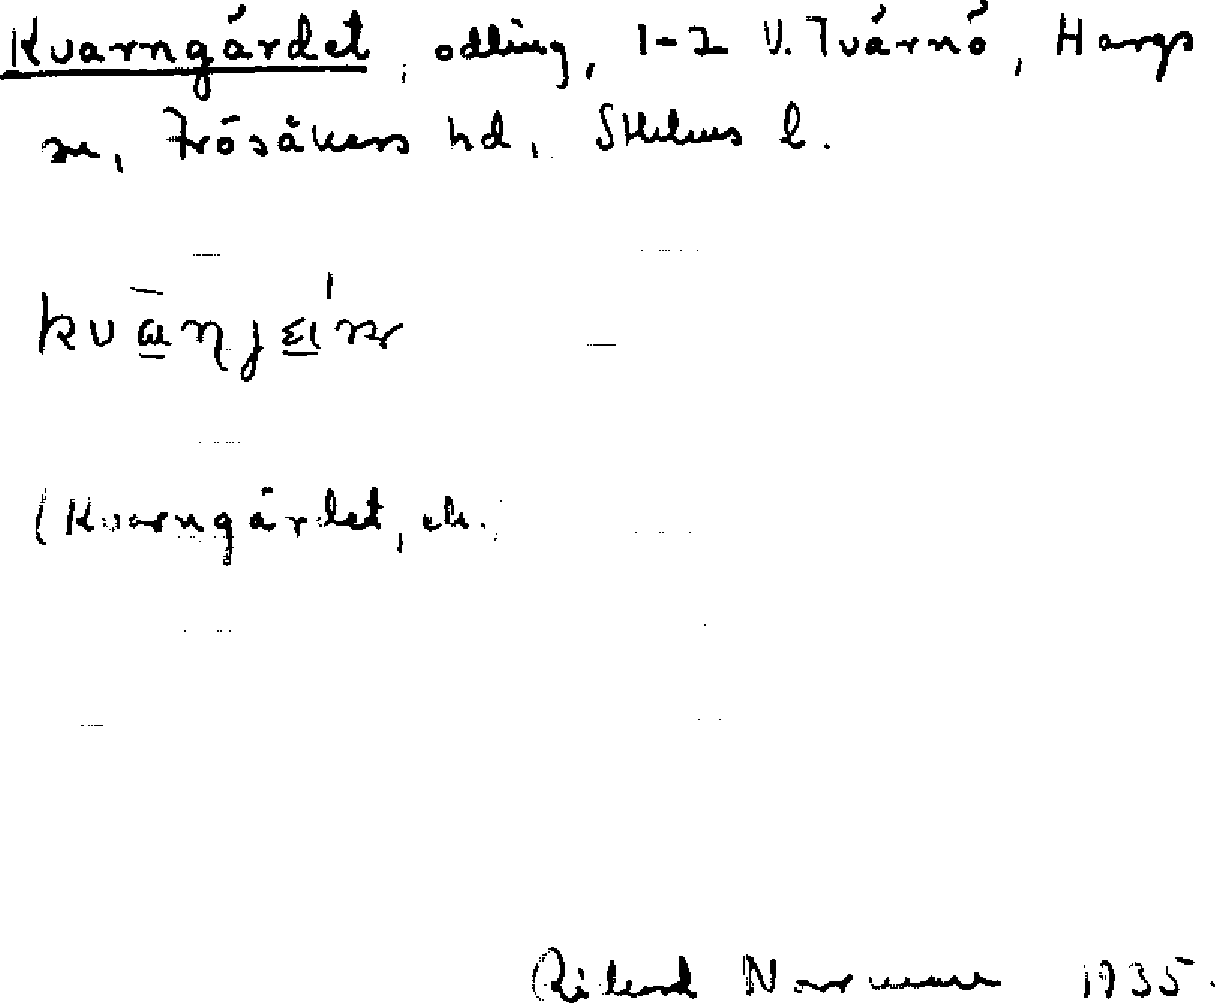 Kvarngärdet, odling, 1-2 V. Tvärnö, Hargs
sn, Frösåkers hd, Sthlms l.
(Kvarngärdet, ek.
Rikard Norrman 1935.